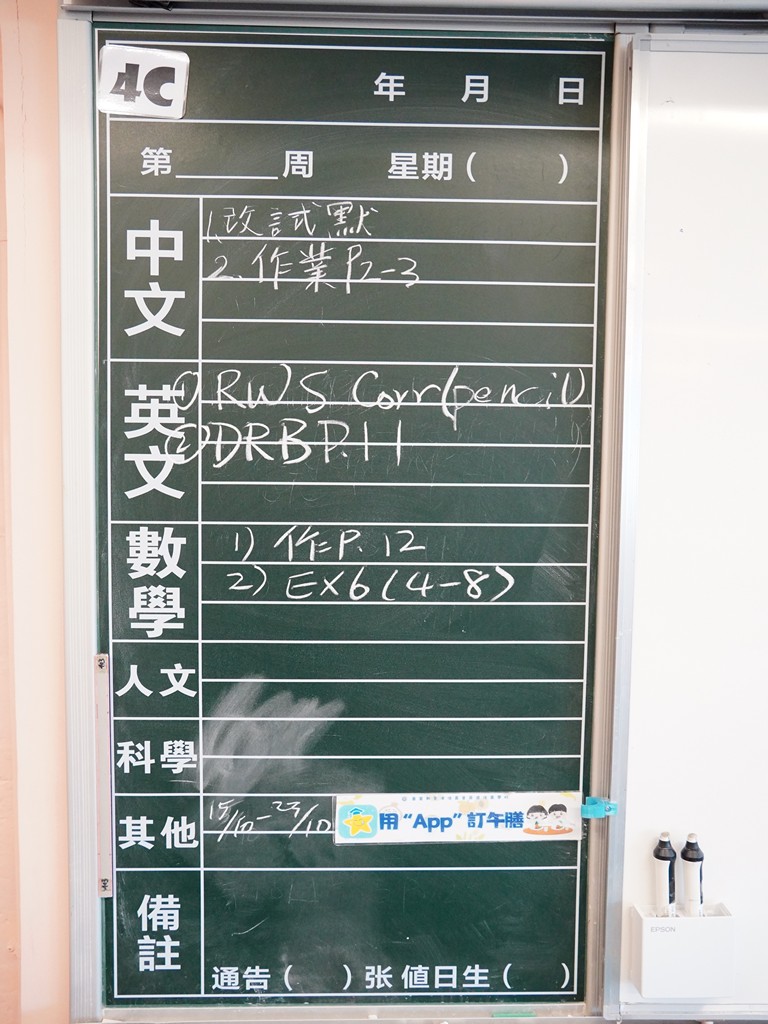 4C
年 月 日
第______周 星期( )
中文
1. 改試默
2. 作業P2-3
英文
① RWS Corr(pencil)
② DRB P.11
數學
1) 作P.12
2) EX6(4-8)
人文
科學
其他
15/10-23/10
用“App”訂午膳
備註
通告( )张 值日生( )
EPSON